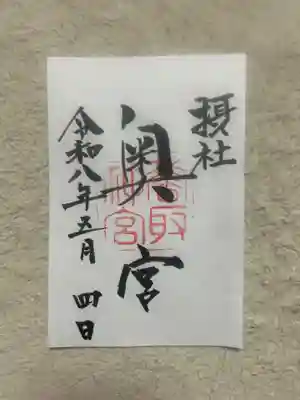 摂社
奥宮
令和八年五月四日
香取
神宮